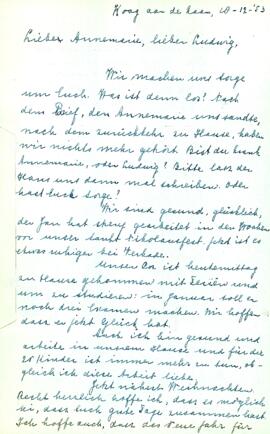 Koog aan de Zaan, 18-12-'53
Lieber Annemarie, lieber Ludwig,
Wir machen uns sorge
um Euch. Was ist denn los? Nach
dem Brief, den Annemarie uns sandte,
nach dem zurückkehr zu Hause, haben
wir nichts mehr gehört. Bist der krank
Annemarie, oder Ludwig? Bitte lass der
Hans uns dann mal schreiben. Oder
hast Euch sorge?
Wir sind gesund, glücklich,
der Jan hat streng gearbeitet in den Wochen
vor unser Sankt Nikolausfest. Jetzt ist es
etwas ruhiger bei Verkade.
Unser Cor ist heute mittag
zu Hause gekommen mit Ferien und
um zu studieren: im Januar soll er
noch drei Examen machen. Wir hoffen
dass er jetzt Glück hat.
Auch ich bin gesund und
arbeite in unserm Hause und für die
20 Kinder ist immer mehr zu tun, ob-
gleich ich diese Arbeit liebe.
Jetzt nähert Weihnachten
Recht herzlich hoffe ich, dass es möglich
sei, dass Euch gute Tage zusammen hast
Ich hoffe auch, dass das neue Jahr für